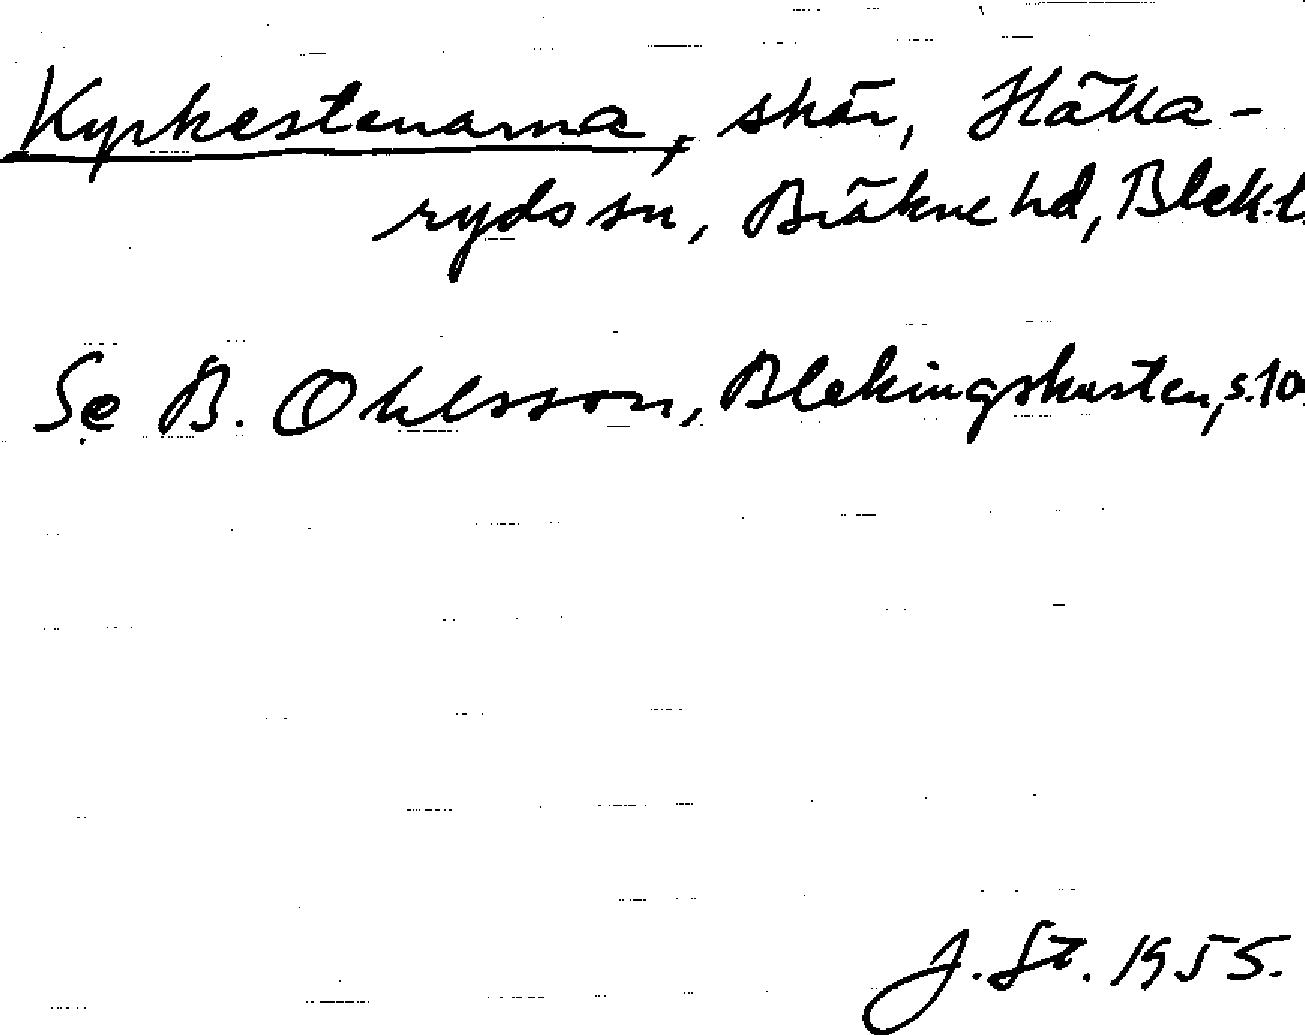 Kyrkestenarna, skär, Hälla-
ryds sn, Bräkne hd, Blek.l.
Se B. Ohlsson, Blekingskusten, s.10
J. St. 1955.